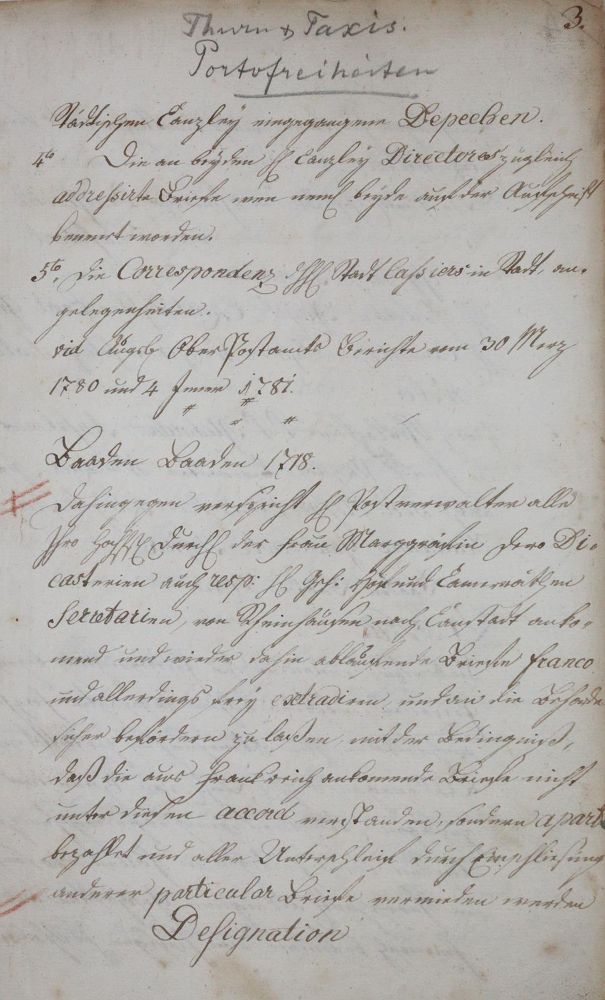 Thurn & Taxis.
3.
Portofreiheiten
Städtischen Canzley eingegangene Depechen.
4to Die an beyden H. Canzley Directores zugleich
addressirte Briefe wen neml. beyde auf der Aufschrift
benent worden.
5to. Die Correspondenz Stadt Cassiers in Stadt, an-
gelegenheiten.
vid Augsb Ober Postamts Berichte vom 30 Merz
1780 und 4 1781.
Baaden Baaden 1718.
Dahingegen verspricht H. Postverwalter alle
Ihro Hochf. Durchl. der Frau Marggräfin dero Di-
casterien auch resp: H. Geh: Hof und Cammerräthen
Secretarien, von Rheinhausen nach Canstadt anko-
mend und wieder dahin ablaufende Briefe franco
und allerdings frey extradiren, und an die Behörde
sicher befördern zu laßen, mit der Bedingniß,
daß die aus Frankreich ankomende Briefe nicht
unter diesen accord verstanden, sondern apart
bezahlet und aller Unterschleif durch Einschliesung
anderer particular Briefe vermieden werden
Designation